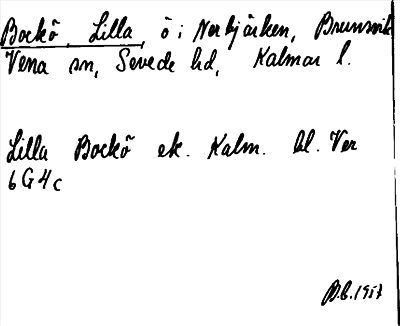 Bockö, Lilla, ö i Nerbjärken, Brunsvik
Vena sn, Sevede hd, Kalmar l.
Lilla Bockö ek. Kalm. bl. Ver
6G4c
B.C.1957